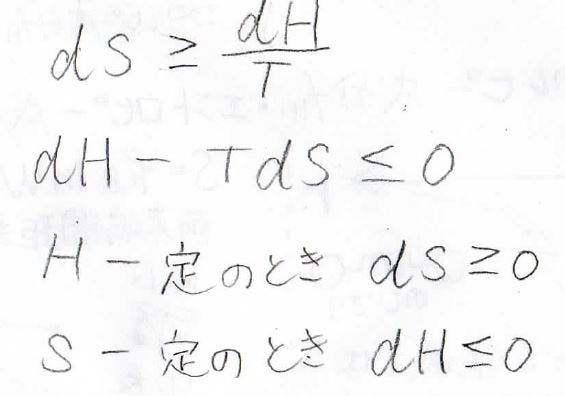 dS ≥ dH/T
dH − TdS ≤ 0
H一定のとき dS≥0
S一定のとき dH≤0